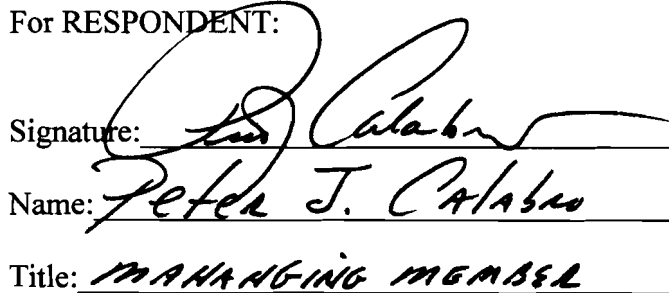 For RESPONDENT:
Signature: Calabro
Name: Peter J. Calabro
Title: MANAGING MEMBER